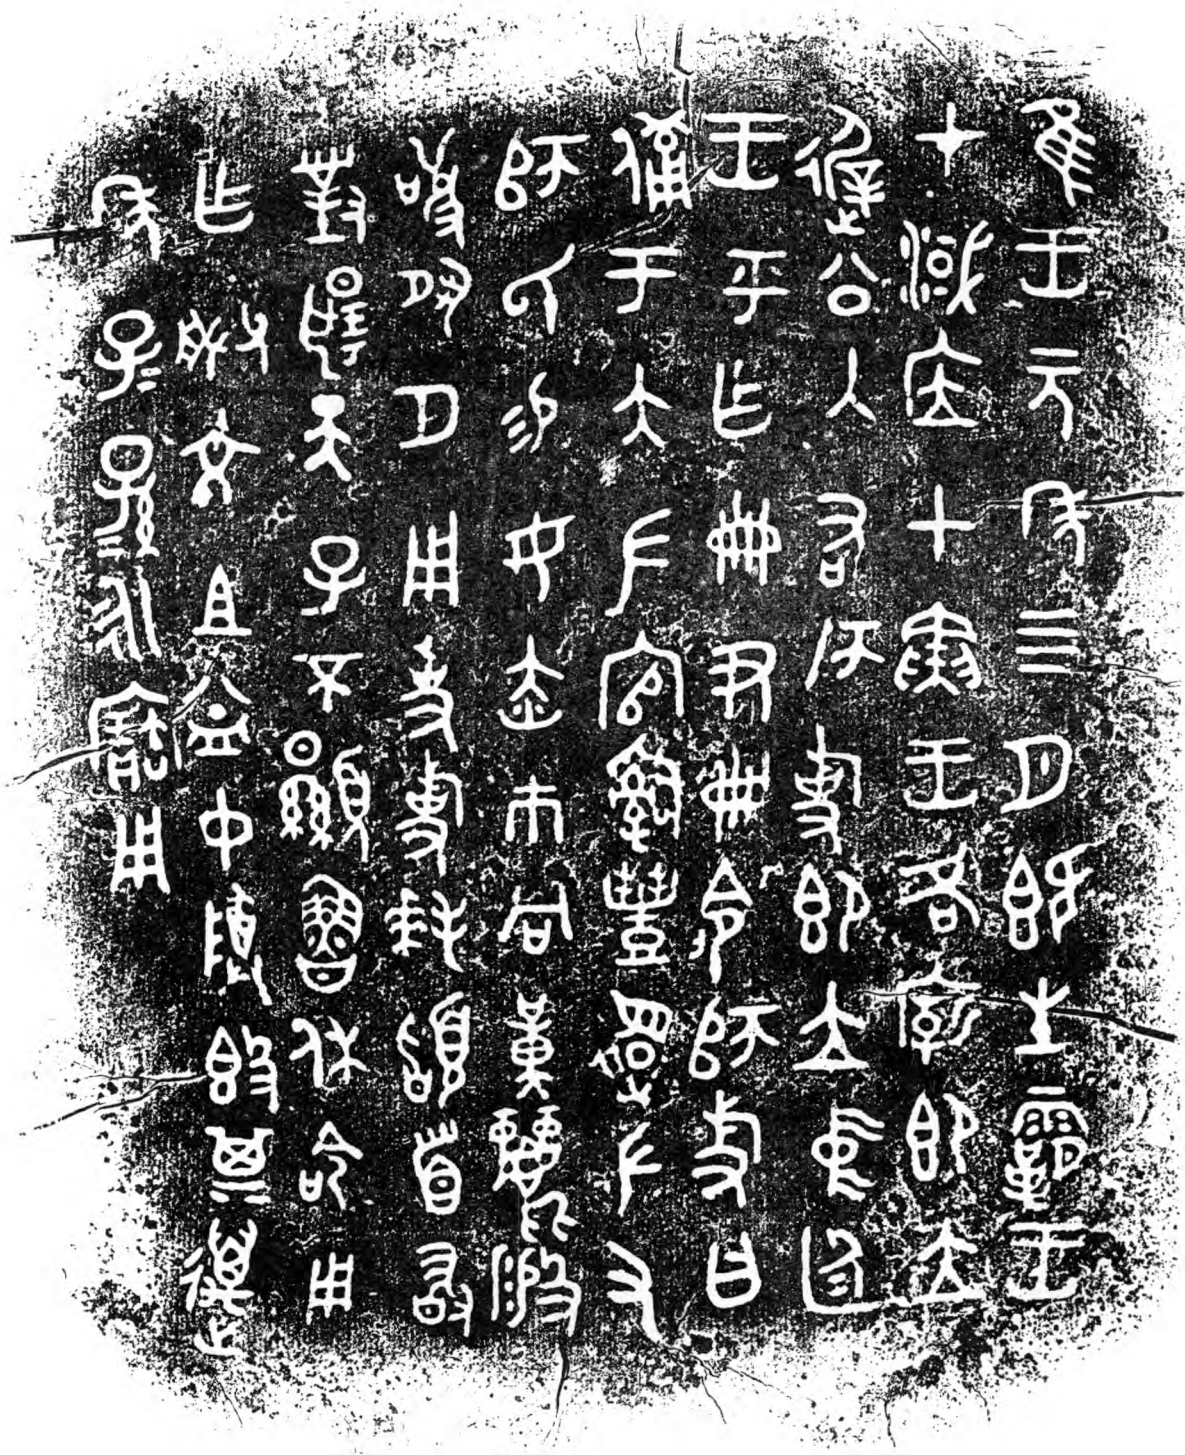 隹王元年亖月既生霸王
才淢应甲寅王各廟即立
遲公入右師旋即立中廷
王乎乍冊尹冊令師旋曰
備于大左官𤔲豐還左又
師氏易女赤巿冋黃麗般
敬夙夕用事旋拜𩒨首敢
對揚天子不顯魯休令用
乍朕文且益中尊簋其萬
年子=孫=永寶用